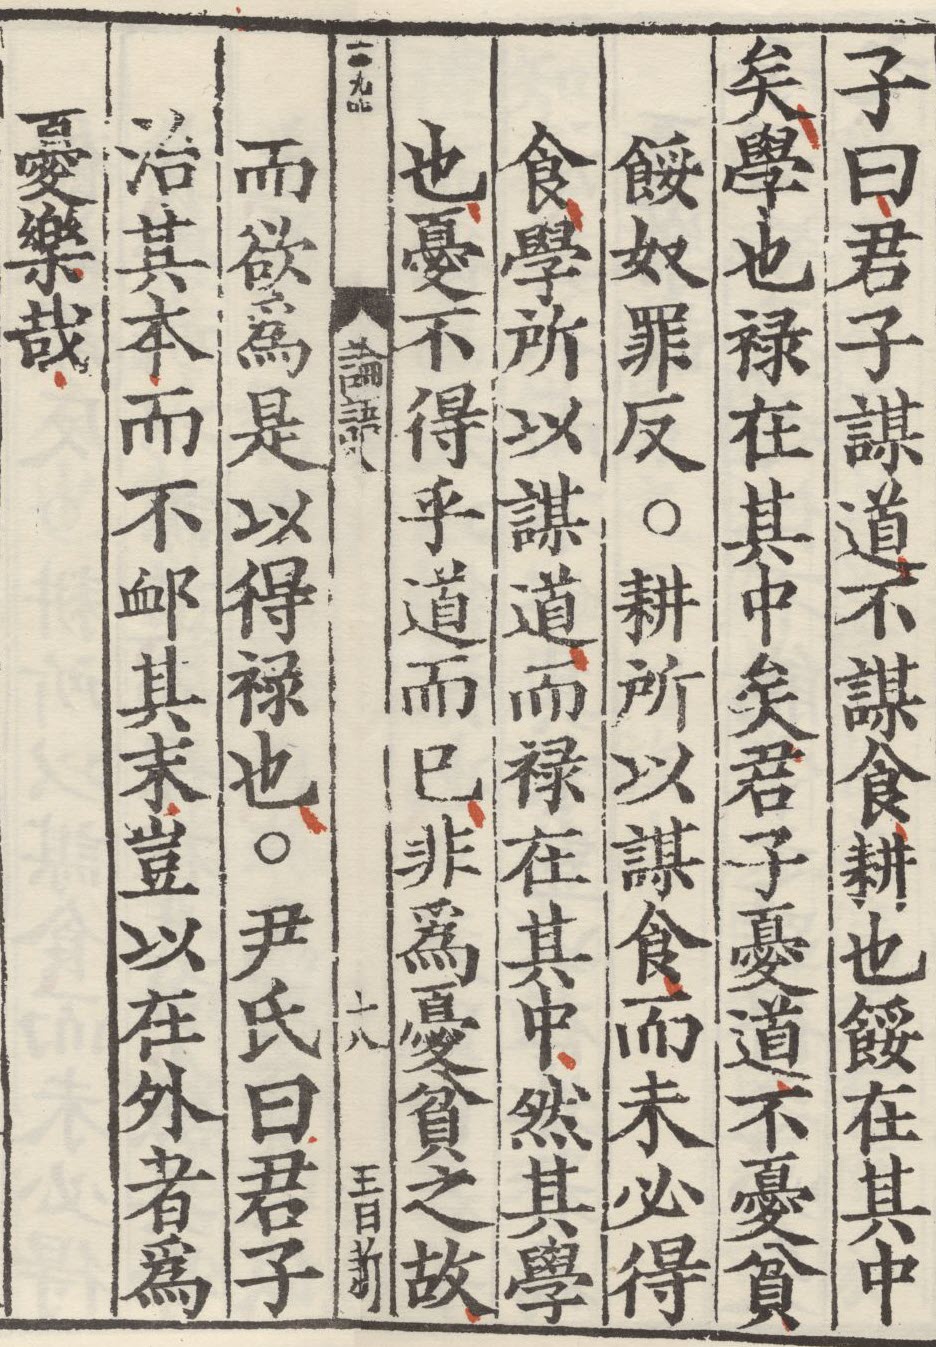 子曰君子謀道不謀食耕也餒在其中
矣學也禄在其中矣君子憂道不憂貧
餒奴罪反○耕所以謀食而未必得
食學所以謀道而禄在其中然其學
也憂不得乎道而已非爲憂貧之故
論語八
十八
王日新
而欲爲是以得禄也○尹氏曰君子
治其本而不䘏其末豈以在外者爲
憂樂哉